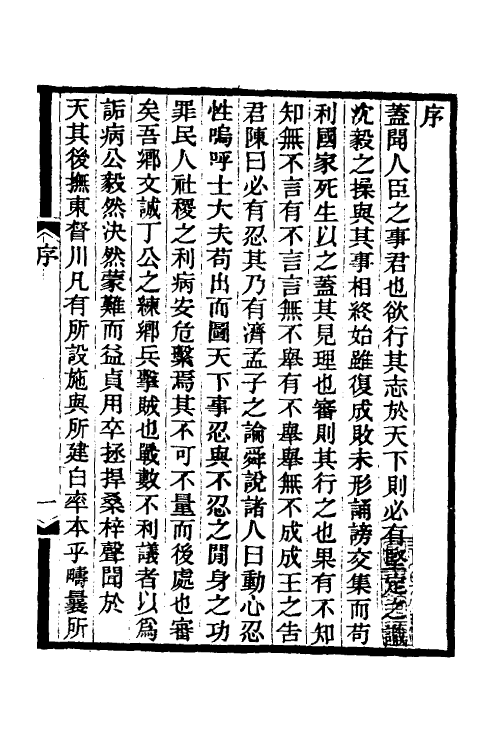 序
蓋聞人臣之事君也欲行其志於天下則必有堅定之識
沈毅之操與其事相終始雖復成敗未形誦謗交集而苟
利國家死生以之蓋其見理也審則其行之也果有不知
知無不言有不言言無不舉有不舉舉無不成成王之告
君陳曰必有忍其乃有濟孟子之論舜說諸人曰動心忍
性嗚呼士大夫苟出而圖天下事忍與不忍之閒身之功
罪民人社稷之利病安危繫焉其不可不量而後處也審
矣吾鄉文誠丁公之練鄉兵擊賊也戰數不利議者以爲
詬病公毅然決然蒙難而益貞用卒拯捍桑梓聲聞於
天其後撫東督川凡有所設施與所建白率本乎疇曩所
序
一